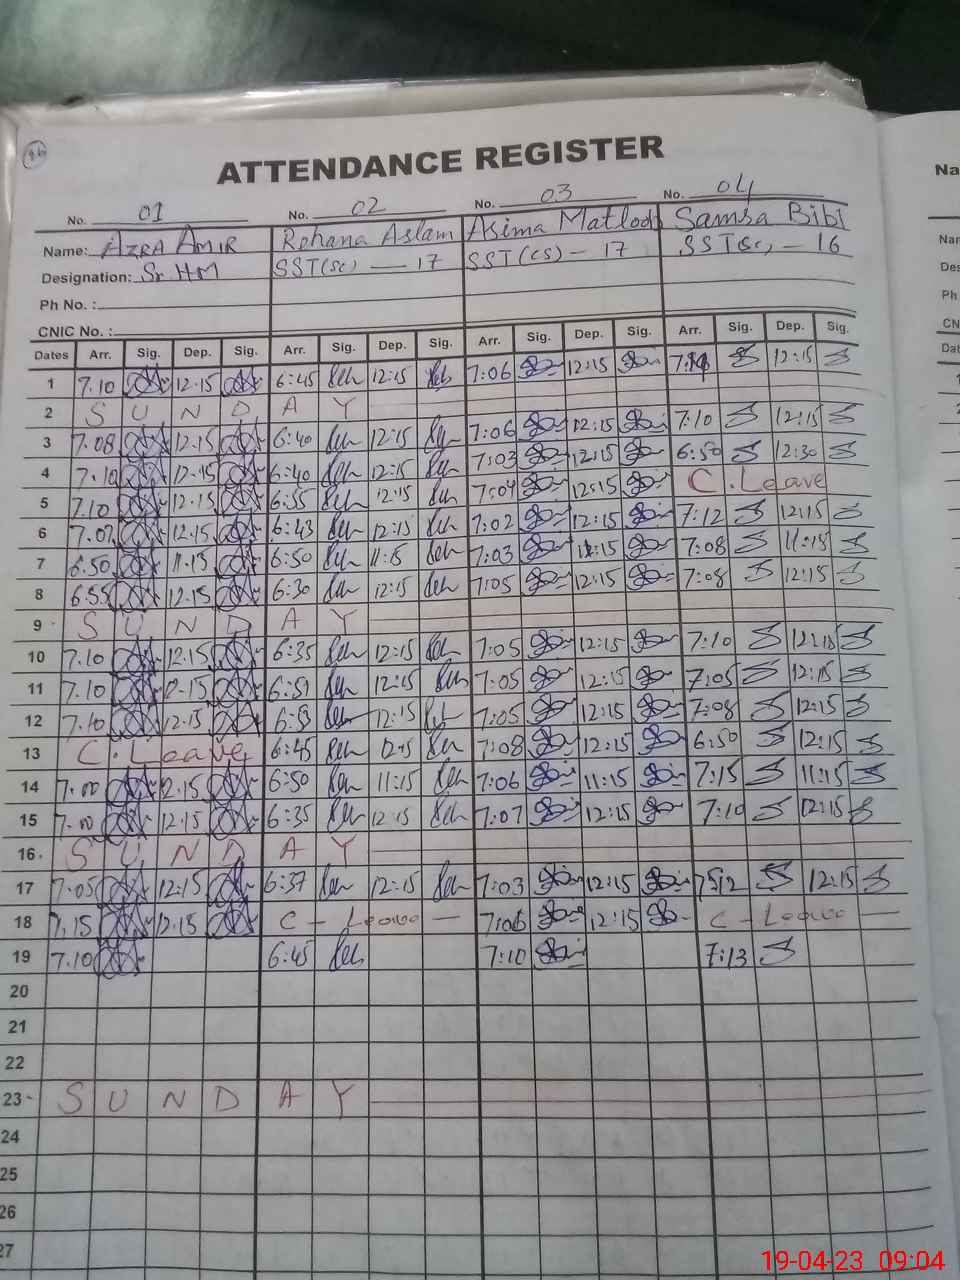 86
ATTENDANCE REGISTER
No. 01 No. 02 No. 03 No. 04
Name: AZRA AMIR Rohana Aslam Asima Matloob Samra Bibi
Designation: Sr HM SST(sc) — 17 SST(cs) - 17 SST(sc) - 16
Ph No. :
CNIC No. :
Dates Arr. Sig. Dep. Sig. Arr. Sig. Dep. Sig. Arr. Sig. Dep. Sig. Arr. Sig. Dep. Sig.
1 7.10 12.15 6:45 12:15 7:06 12:15 12:15
2 S U N D A Y
3 7.08 12.15 6:40 12:15 7:06 12:15 7:10 12:15
4 7.10 12.15 6:40 12:15 7:03 12:15 6:50 12:30
5 7.10 12.15 6:55 12:15 7:04 12:15 C.Leave
6 7.07 12.15 6:43 12:15 7:02 12:15 7:12 12:15
7 6.50 11.15 6:50 11:15 7:03 11:15 7:08 11:15
8 6.55 12.15 6:30 12:15 7:05 12:15 7:08 12:15
9 S U N D A Y
10 7.10 12.15 6:35 12:15 7:05 12:15 7:10 12:15
11 7.10 12.15 6:51 12:15 7:05 12:15 7:05 12:15
12 7.10 12.15 6:53 12:15 7:05 12:15 7:08 12:15
13 C. Leave 6:45 12:15 7:08 12:15 6:50 12:15
14 7.00 12.15 6:50 11:15 7:06 11:15 7:15 11:15
15 7.00 12.15 6:35 12:15 7:07 12:15 7:10 12:15
16 S U N D A Y
17 7.05 12.15 6:37 12:15 7:03 12:15 12:15
18 7.15 12.15 C - Leave — 7:06 12:15 C - Leave —
19 7.10 6:45 7:10 7:13
20
21
22
23 S U N D A Y
24
25
26
27
Na
Nam
Des
Ph
CN
Dat
19-04-23 09:04